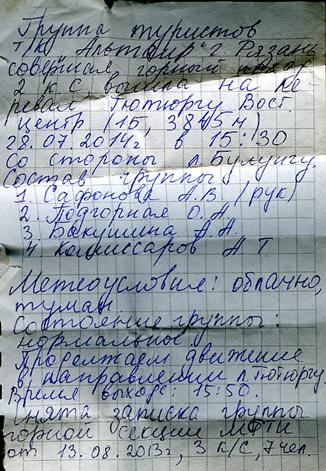 Группа туристов
т/к "Альтаир" г. Рязань
совершая горный поход
2 к.с. вышла на пе-
ревал Тютюргу Вост.
центр (1Б, 3845 м)
28.07.2014г в 15:30
со стороны л.Булунгу.
Состав группы
1. Сафонова А.В (рук)
2. Подгорная О.А
3. Бакушина А.А
4. Комиссаров А Т.
Метеоусловия: облачно,
туман
Состояние группы:
нормальное.
Продолжаем движение
в направлении л.Тютюргу.
Время выхода: 15:50.
Снята записка группы
горной секции МФТИ
от 13.08.2013г, 3 к/с, 7 чел.